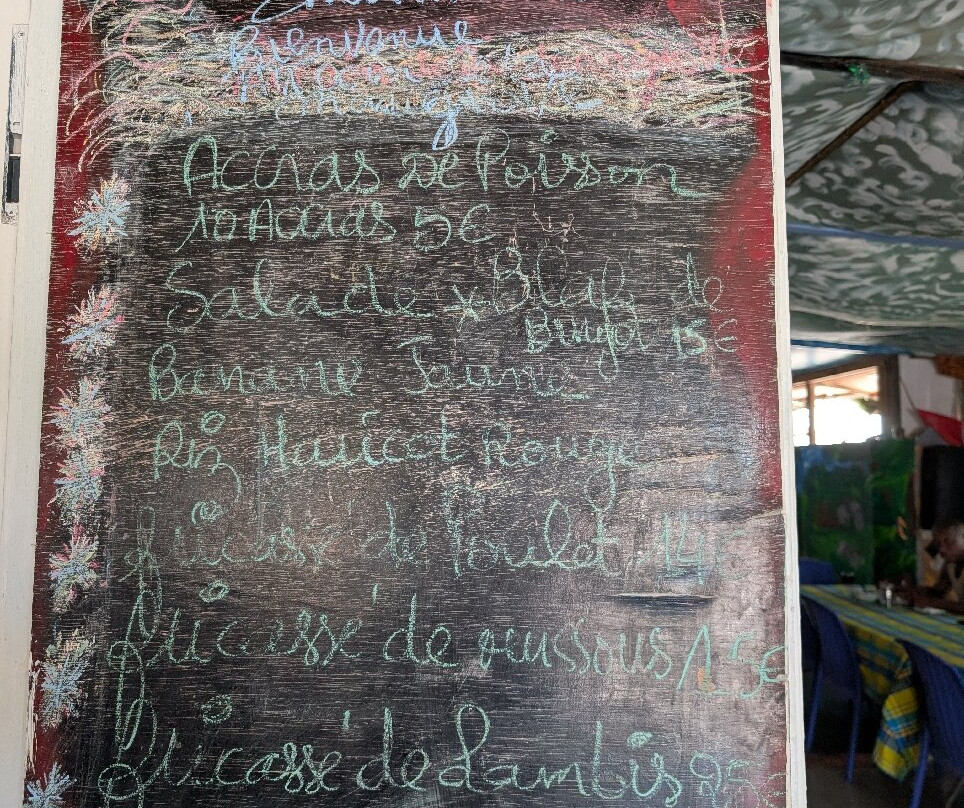 Bienvenue
Accras De Poisson
10 Accras 5€
Salade * Blaff de
Burgot 15€
Banane Jaune
Riz Haricot Rouge
fricassé de Poulet 14€
fricassé de ouassous 15€
fricassé de Lambis